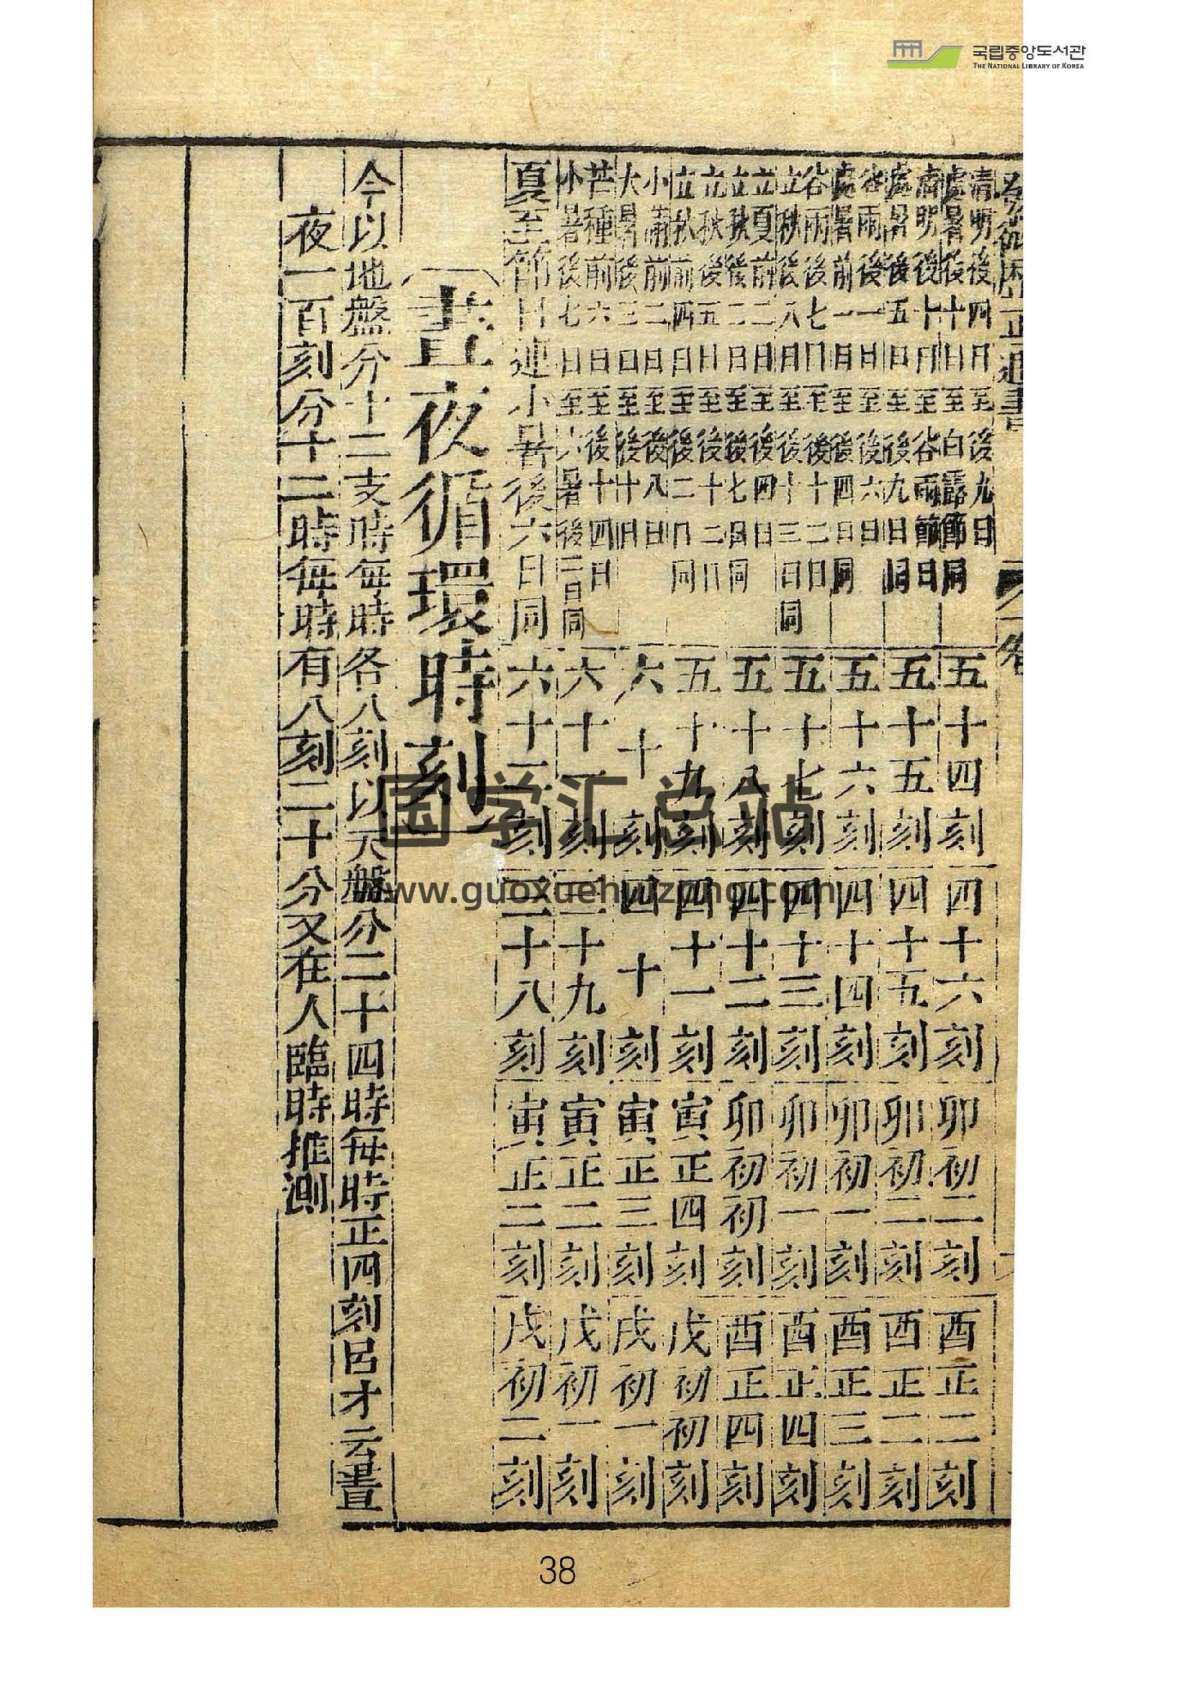 국립중앙도서관
THE NATIONAL LIBRARY OF KOREA
清明後四日至後九日
處暑後十日至白露節同
五十四刻 四十六刻 卯初二刻 酉正二刻
清明後十日至谷雨節日
處暑後五日至後九日同
五十五刻 四十五刻 卯初二刻 酉正二刻
谷雨後一日至後六日
處暑前一日至後四日同
五十六刻 四十四刻 卯初一刻 酉正三刻
谷雨後七日至後十二日
立秋後八日至後十三日同
五十七刻 四十三刻 卯初一刻 酉正四刻
立夏前二日至後四日
立秋後二日至後七日同
五十八刻 四十二刻 卯初初刻 酉正四刻
立後五日至後十二日
立秋前四日至後二日同
五十九刻 四十一刻 寅正四刻 戌初初刻
小滿前二日至後八日
大暑後三日至後十日
六十刻 四十刻 寅正三刻 戌初一刻
芒種前六日至後十四日
小暑後七日至大暑後二日同
六十刻 三十九刻 寅正二刻 戌初一刻
夏至節日連小暑後六日同
六十二刻 三十八刻 寅正二刻 戌初二刻
晝夜循環時刻
今以地盤分十二支時每時各八刻以天盤分二十四時每時正四刻呂才云晝
夜一百刻分十二時每時有八刻二十分又在人臨時推測
国学汇总站
www.guoxuehuizong.com
38